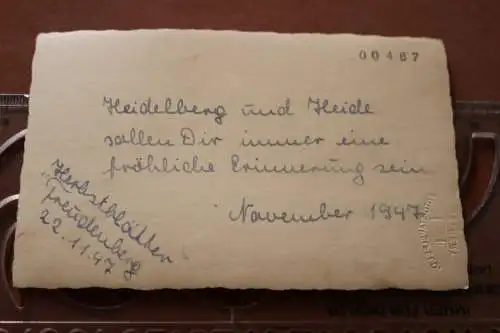 00467
Heidelberg und Heide
sollen Dir immer eine
fröhliche Erinnerung sein
November 1947
"Herbstblätter
Freudenberg
22.11.47